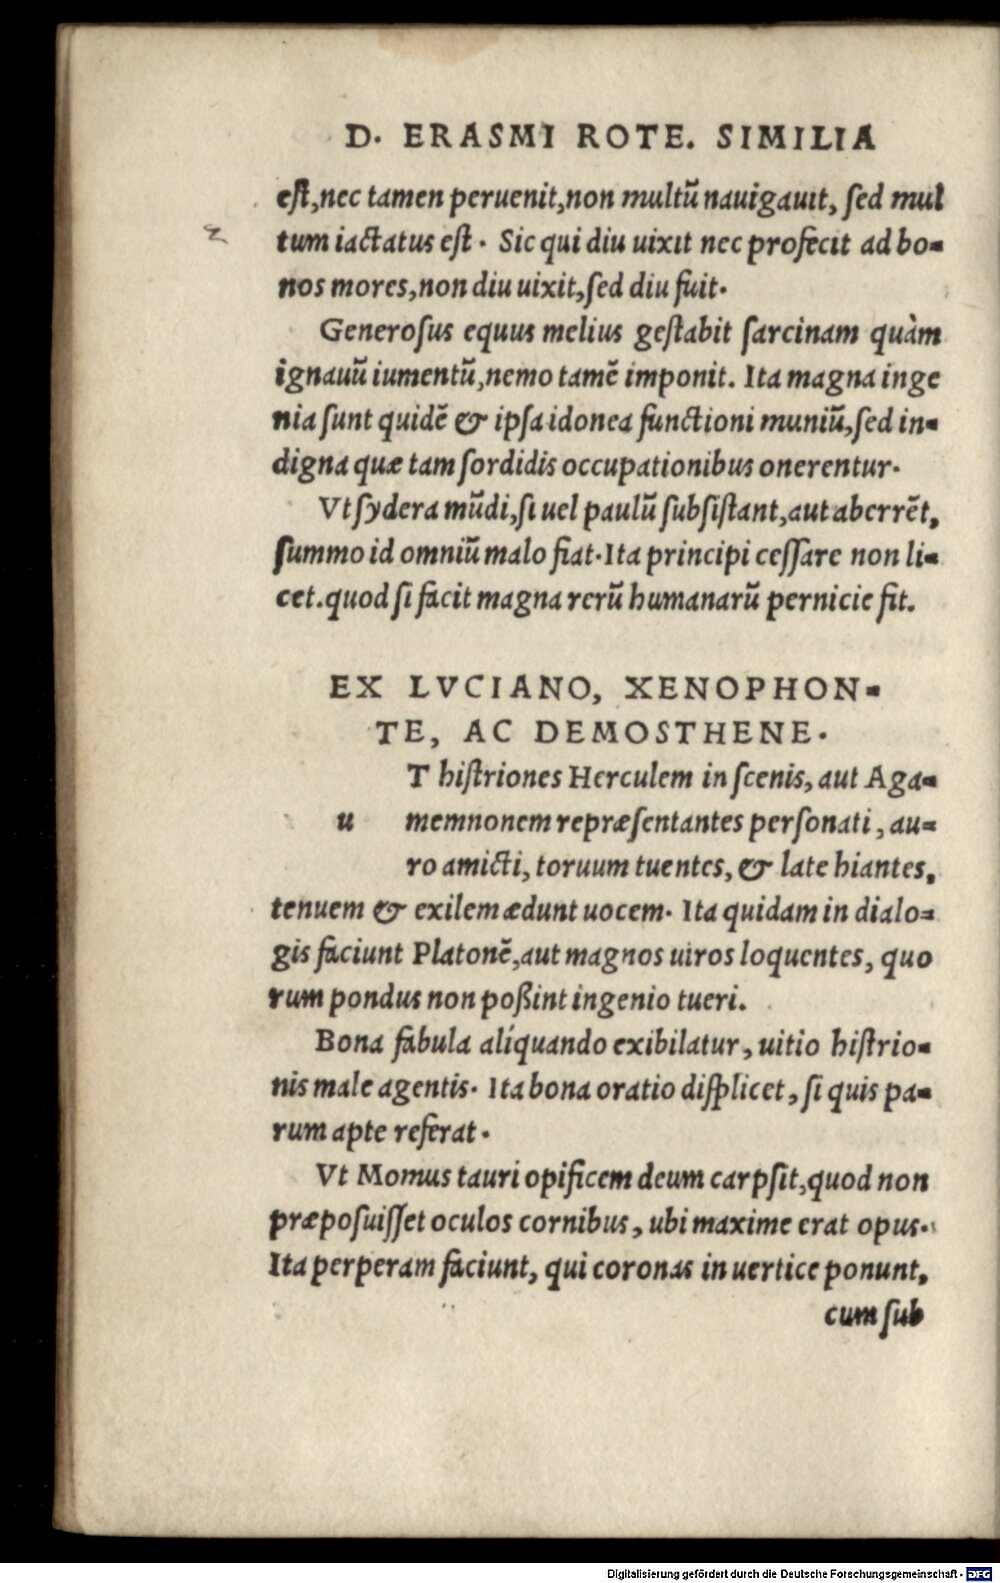 D. ERASMI ROTE. SIMILIA
est, nec tamen peruenit, non multũ nauigauit, sed mul
tum iactatus est. Sic qui diu uixit nec profecit ad bo-
nos mores, non diu uixit, sed diu fuit.
Generosus equus melius gestabit sarcinam quàm
ignauũ iumentũ, nemo tamẽ imponit. Ita magna inge
nia sunt quidẽ & ipsa idonea functioni muniũ, sed in-
digna quæ tam sordidis occupationibus onerentur.
Vt sydera mũdi, si uel paulũ subsistant, aut aberrẽt,
summo id omniũ malo fiat. Ita principi cessare non li-
cet. quod si facit magna rerũ humanarũ pernicie fit.
EX LVCIANO, XENOPHON-
TE, AC DEMOSTHENE.
T histriones Herculem in scenis, aut Aga-
u memnonem repræsentantes personati, au-
ro amicti, toruum tuentes, & late hiantes,
tenuem & exilem ædunt uocem. Ita quidam in dialo-
gis faciunt Platonẽ, aut magnos uiros loquentes, quo
rum pondus non poßint ingenio tueri.
Bona fabula aliquando exibilatur, uitio histrio-
nis male agentis. Ita bona oratio displicet, si quis pa-
rum apte referat.
Vt Momus tauri opificem deum carpsit, quod non
præposuisset oculos cornibus, ubi maxime erat opus.
Ita perperam faciunt, qui coronas in uertice ponunt,
cum sub
Digitalisierung gefördert durch die Deutsche Forschungsgemeinschaft - DFG